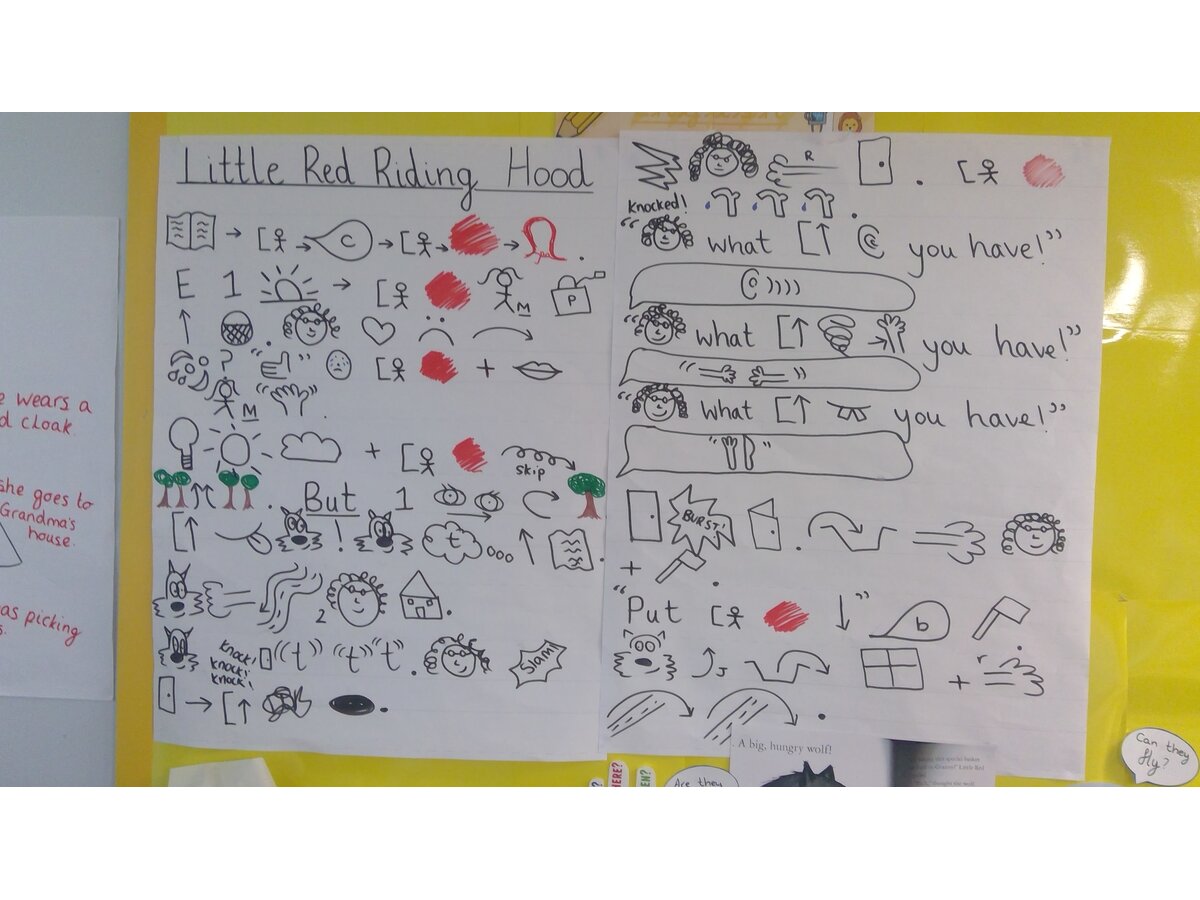 Little Red Riding Hood
C
E 1 M P
? " "
M " "
+ skip
But 1
! t
2
Knock! Knock! Knock! "t" "t" "t" . Slam!
R
Knocked!
" what you have!"
" what you have!"
" "
" what you have!"
" "
BURST!
+
"Put " b
+
e wears a
d cloak.
she goes to
Grandma's
house.
as picking
. A big, hungry wolf!
HERE?
EN?
Are they
Can they
fly?